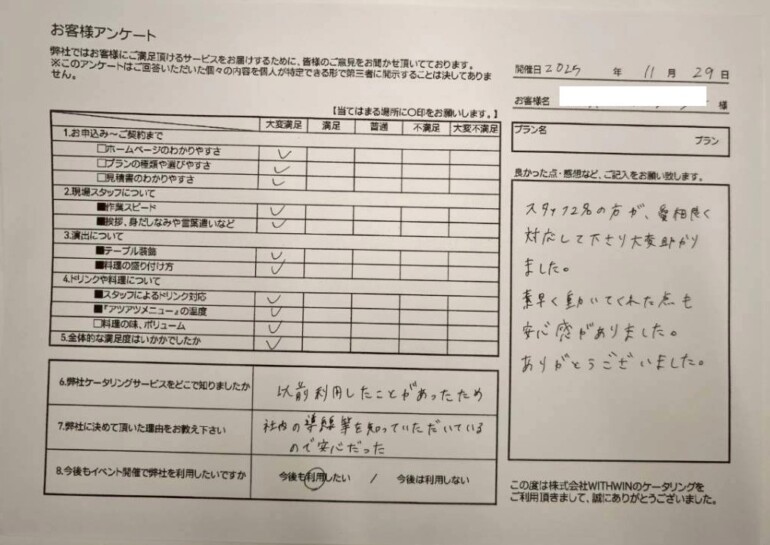 お客様アンケート
弊社ではお客様にご満足頂けるサービスをお届けするために、皆様のご意見をお聞かせ頂いております。
※このアンケートはご回答いただいた個々の内容を個人が特定できる形で第三者に開示することは決してありません。
【当てはまる場所に〇印をお願いします。】
大変満足 満足 普通 不満足 大変不満足
1.お申込み～ご契約まで
□ホームページのわかりやすさ ✓
□プランの種類や選びやすさ ✓
□見積書のわかりやすさ ✓
2.現場スタッフについて
■作業スピード ✓
■挨拶、身だしなみや言葉遣いなど ✓
3.演出について
■テーブル装飾 ✓
■料理の盛り付け方 ✓
4.ドリンクや料理について
■スタッフによるドリンク対応 ✓
■『アツアツメニュー』の温度 ✓
□料理の味、ボリューム ✓
5.全体的な満足度はいかがでしたか ✓
6.弊社ケータリングサービスをどこで知りましたか
以前利用したことがあったため
7.弊社に決めて頂いた理由をお教え下さい
社内の導線等を知っていただいている
ので安心だった
8.今後もイベント開催で弊社を利用したいですか
今後も利用したい / 今後は利用しない
開催日 2025 年 11 月 29 日
お客様名 様
プラン名
プラン
良かった点・感想など、ご記入をお願い致します。
スタッフ2名の方が、愛想良く
対応して下さり大変助かり
ました。
素早く動いてくれた点も
安心感がありました。
ありがとうございました。
この度は株式会社WITHWINのケータリングを
ご利用頂きまして、誠にありがとうございました。